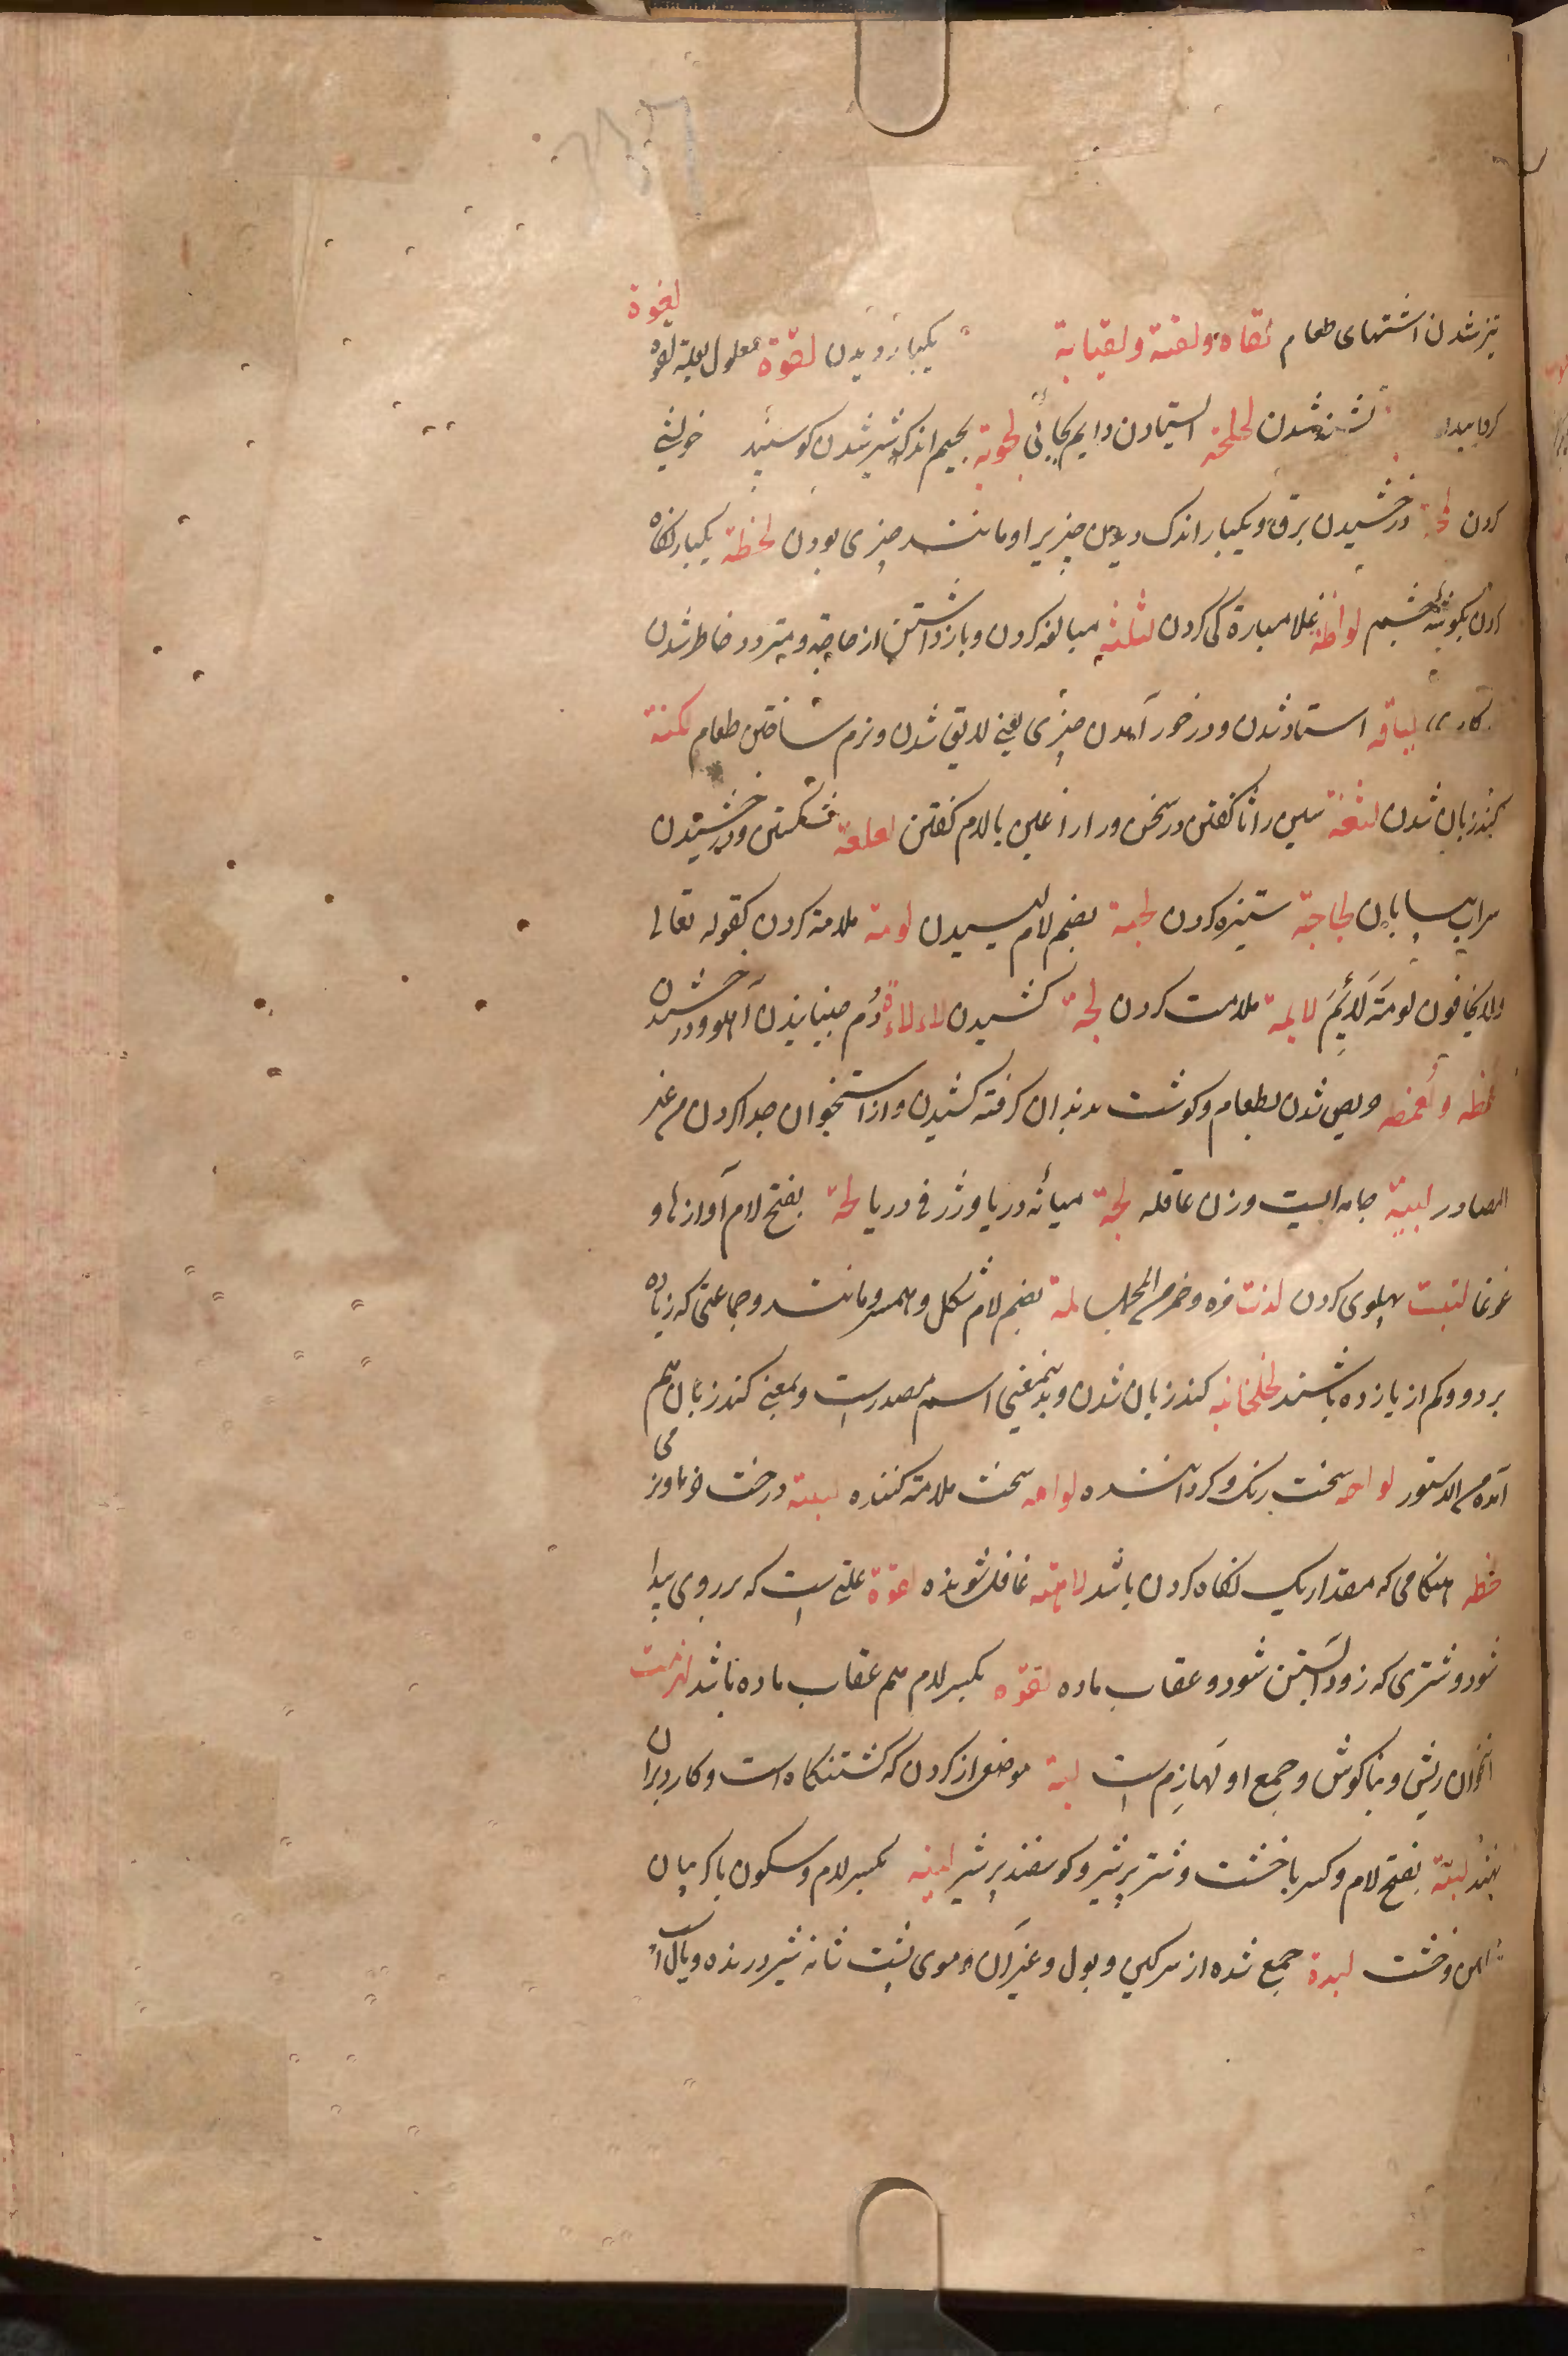 تیز شدن اشتهای طعام لقاه ولقیة ولقیایة یکبار دیدن لقوة معلول بعلة لقوه لغوة
تشنه شدن لحلحة ایستادن دایم بجائی لجوبة بجیم اندک شیر شدن کوسپند خویشی
کردن لمحة درخشیدن برق و یکبار اندک دیدن چیزیرا و مانند چیزی بودن لحظة یکبار نکاه
کردن بکوشه چشم لواطة غلامبارکی کردن لثلثه مبالغه کردن و بازداشتن از حاجة و متردد خاطر شدن
لباقه استاد شدن و در خور آمدن چیزی یعنی لایق شدن و نرم ساختن طعام لکنة
کندزبان شدن لثغة سین را ثا کفتن در سخن و را را غین یا لام کفتن لعلعة شکستن و درخشیدن
سراب بیابان لجاجة ستیزه کردن لجمة بضم لام لیسیدن لومة ملامة کردن کقوله تعالی
ولا یخافون لومة لائم لایمة ملامت کردن لجة کشیدن لاءلاءة دُم جنبانیدن آهو و درخشیدن
لمظه ولعمضه حریص شدن بطعام و کوشت بدندان کرفته کشیدن و از استخوان جدا کردن من غیر
المصادر لبیبة جامه ایست و زن عاقله لجة میانه دریا و ژرفی دریا لجة بفتح لام آوازها و
غوغا لتبت پهلوی کردن لذت مزه و خمر من المهذب لمة بضم لام شکل و همسر و مانند و جماعتی که زیاده
بر دو و کم از یازده باشند لخلخانیه کندزبان شدن و بدینمعنی اسم مصدرست و بمعنی کندزبان هم
آمده من الدستور لواحه سخت رنک و کرداننده لوامه سخت ملامة کننده لینة درخت خرما و نرمی
لحظه هنکامی که مقدار یک نکاه کردن باشد لاهیة غافل شونده لقوة علتی است که بر روی پیدا
شود و شتری که زود آبستن شود و عقاب ماده لقوه بکسر لام هم عقاب ماده باشد لهزمت
استخوان ریش و بناکوش و جمع او لَهازِم است لبة موضعی از کردن که کشتنکاه است و کارد بران
نهند لبنة بفتح لام و کسر با خشت و شتر پرشیر و کوسفند پرشیر لبنه بکسر لام و سکون با کریبان
پیراهن و خشت لبدة جمع شده از سرکین و بول و غیر آن و موی پشت شانه شیر درنده و یال